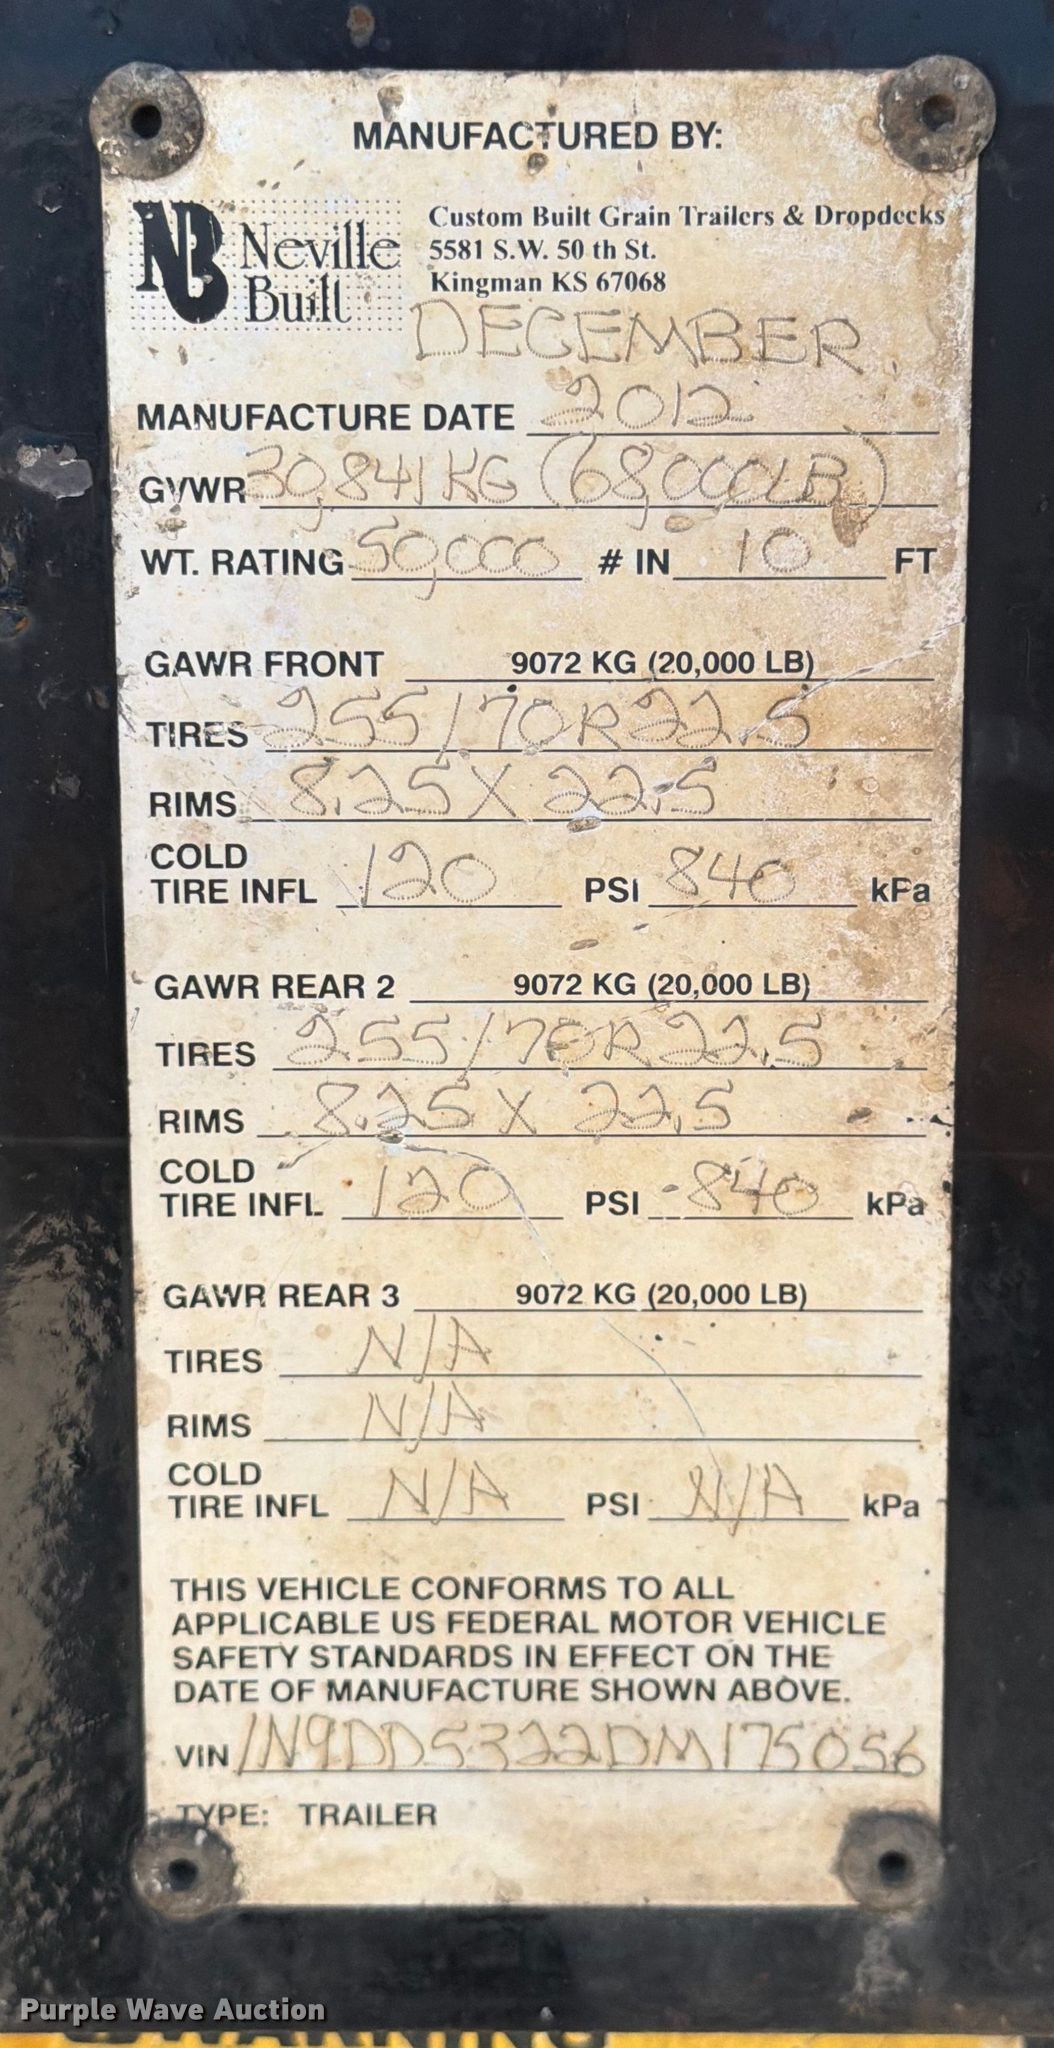 MANUFACTURED BY:
NB Neville Built
Custom Built Grain Trailers & Dropdecks
5581 S.W. 50 th St.
Kingman KS 67068
DECEMBER
MANUFACTURE DATE 2012
GVWR 30,841 KG (68,000LB)
WT. RATING 50,000 # IN 10 FT
GAWR FRONT 9072 KG (20,000 LB)
TIRES 255/70R22.5
RIMS 8.25 X 22.5
COLD
TIRE INFL 120 PSI 840 kPa
GAWR REAR 2 9072 KG (20,000 LB)
TIRES 255/70R22.5
RIMS 8.25 X 22.5
COLD
TIRE INFL 120 PSI 840 kPa
GAWR REAR 3 9072 KG (20,000 LB)
TIRES N/A
RIMS N/A
COLD
TIRE INFL N/A PSI N/A kPa
THIS VEHICLE CONFORMS TO ALL
APPLICABLE US FEDERAL MOTOR VEHICLE
SAFETY STANDARDS IN EFFECT ON THE
DATE OF MANUFACTURE SHOWN ABOVE.
VIN 1N9DD5322DM175056
TYPE: TRAILER
Purple Wave Auction
WARNING